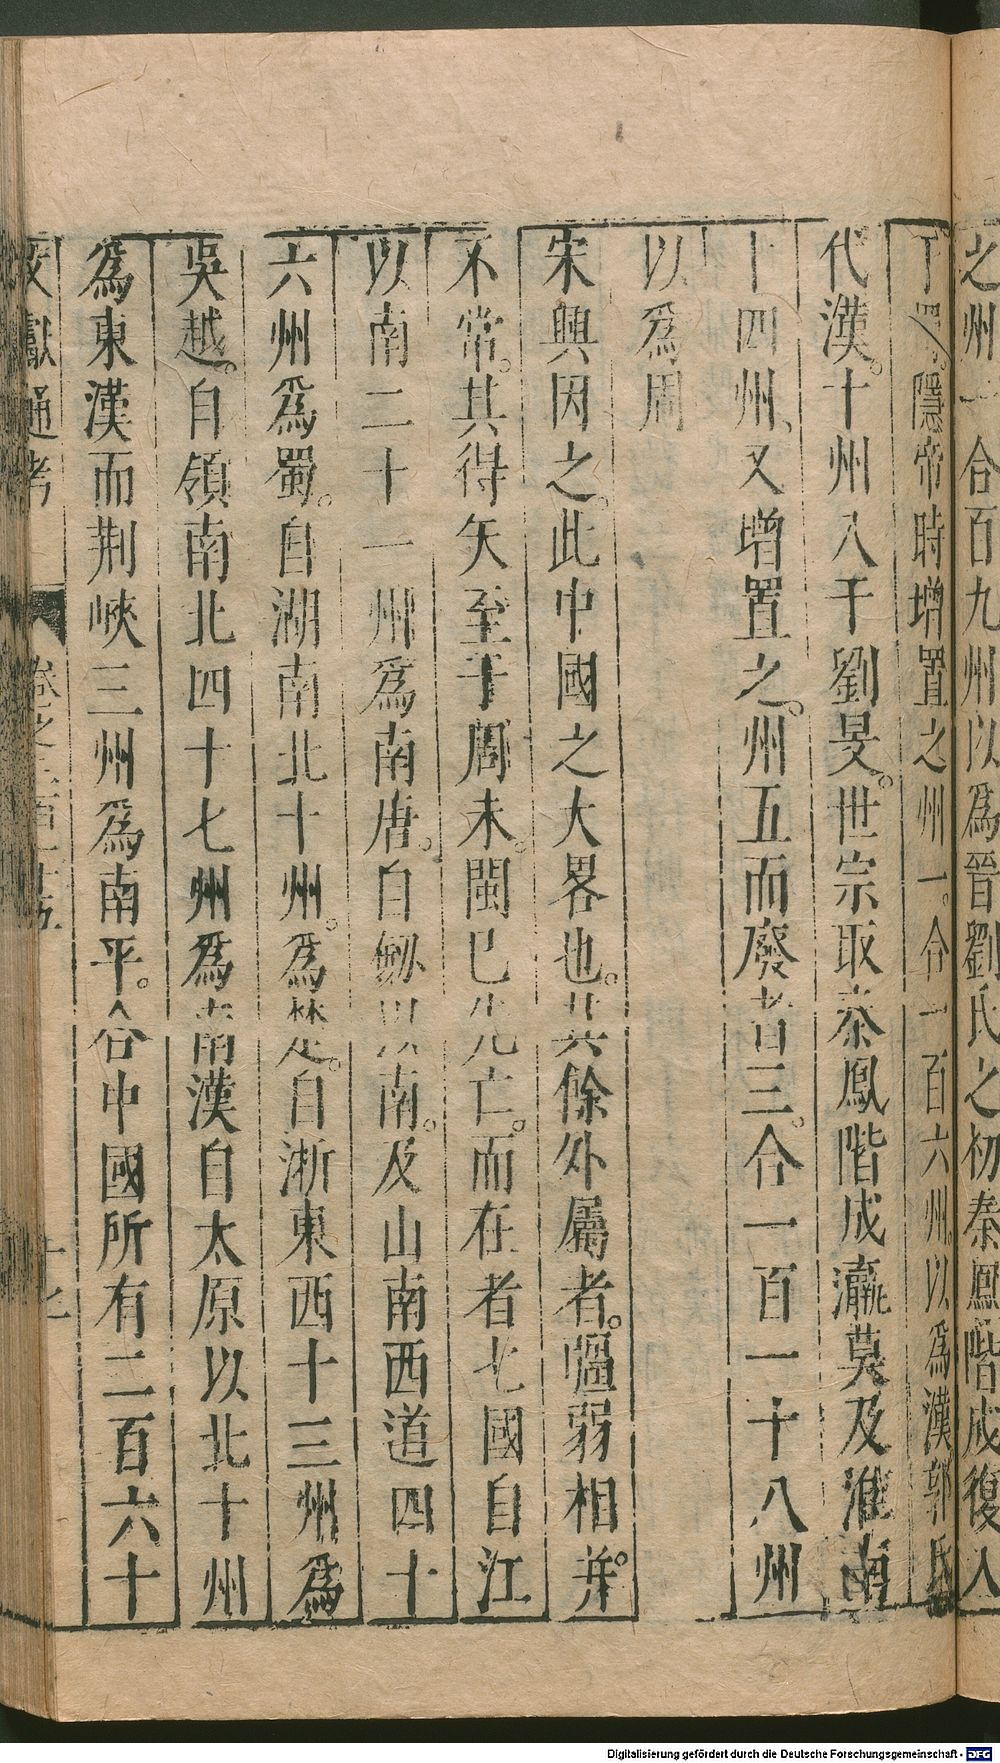 之州一合百九州以爲晉劉氏之初秦鳳階成復入
于蜀隱帝時增置之州一合一百六州以爲漢郭氏
代漢十州入于劉旻世宗取秦鳳階成瀛莫及淮南
十四州又增置之州五而廢者三合一百一十八州
以爲周
宋興因之此中國之大畧也其餘外屬者彊弱相并
不常其得失至于周末閩巳先亡而在者七國自江
以南二十一州爲南唐自劒以南及山南西道四十
六州爲蜀自湖南北十州爲楚自浙東西十三州爲
吳越自領南北四十七州爲南漢自太原以北十州
爲東漢而荆峽三州爲南平合中國所有二百六十
文獻通考 卷之三百一十五 十七
Digitalisierung gefördert durch die Deutsche Forschungsgemeinschaft - DFG